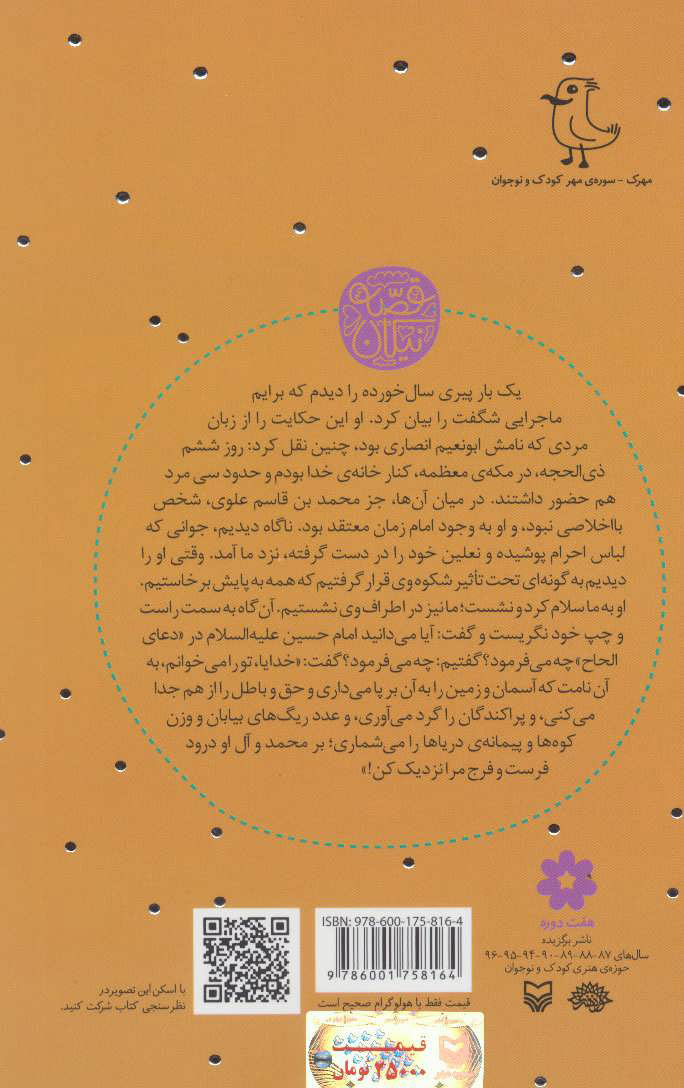 مهرک - سوره‌ی مهر کودک و نوجوان
قصّه
نیکان
یک بار پیری سال‌خورده را دیدم که برایم
ماجرایی شگفت را بیان کرد. او این حکایت را از زبان
مردی که نامش ابونعیم انصاری بود، چنین نقل کرد: روز ششم
ذی‌الحجه، در مکه‌ی معظمه، کنار خانه‌ی خدا بودم و حدود سی مرد
هم حضور داشتند. در میان آن‌ها، جز محمد بن قاسم علوی، شخص
بااخلاصی نبود، و او به وجود امام زمان معتقد بود. ناگاه دیدیم، جوانی که
لباس احرام پوشیده و نعلین خود را در دست گرفته، نزد ما آمد. وقتی او را
دیدیم به گونه‌ای تحت تأثیر شکوه وی قرار گرفتیم که همه به پایش برخاستیم.
او به ما سلام کرد و نشست؛ ما نیز در اطراف وی نشستیم. آن‌گاه به سمت راست
و چپ خود نگریست و گفت: آیا می‌دانید امام حسین علیه‌السلام در «دعای
الحاح» چه می‌فرمود؟ گفتیم: چه می‌فرمود؟ گفت: «خدایا، تو را می‌خوانم، به
آن نامت که آسمان و زمین را به آن بر پا می‌داری و حق و باطل را از هم جدا
می‌کنی، و پراکندگان را گرد می‌آوری، و عدد ریگ‌های بیابان و وزن
کوه‌ها و پیمانه‌ی دریاها را می‌شماری؛ بر محمد و آل او درود
فرست و فرج مرا نزدیک کن!»
هفت دوره
ناشر برگزیده
سال‌های ۸۷-۸۸-۸۹-۹۰-۹۴-۹۵-۹۶
حوزه‌ی هنری کودک و نوجوان
ISBN: 978-600-175-816-4
9 786001 758164
قیمت فقط با هولوگرام صحیح است
با اسکن این تصویر در
نظرسنجی کتاب شرکت کنید.
قیمت
۲۵۰۰۰ تومان